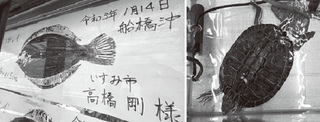 令和3年1月14日
船橋沖
いすみ市
高橋 剛 様